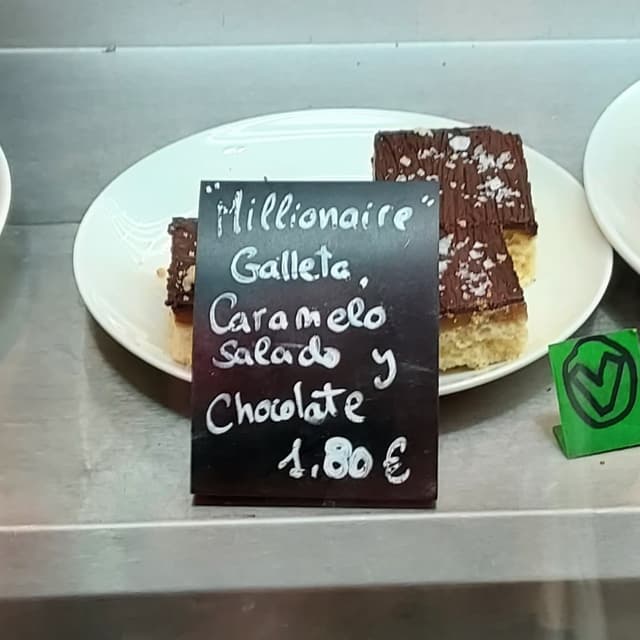 "Millionaire"
Galleta,
Caramelo
Salado y
Chocolate
1.80 €
V